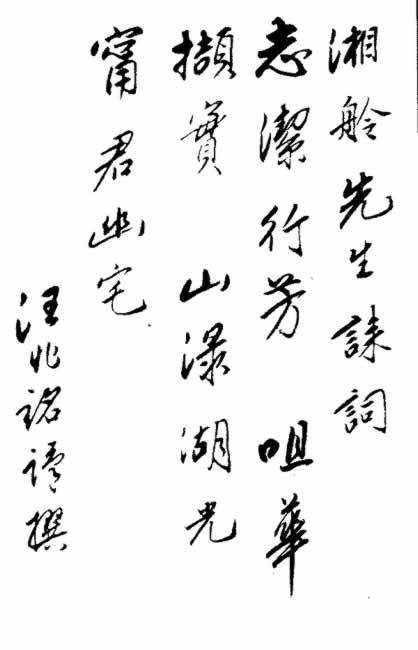 湘舲先生誄詞
志潔行芳 咀華
擷實 山渌湖光
甯君幽宅
汪兆銘謹撰